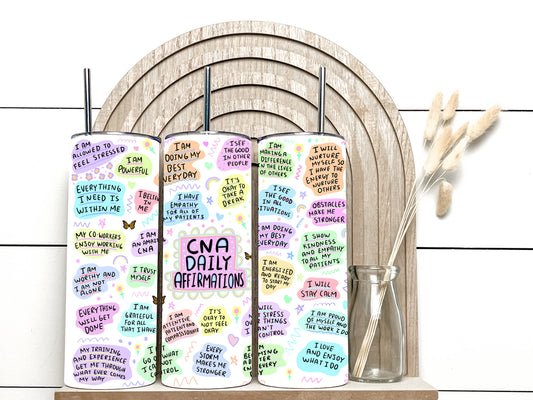 I AM
ALLOWED TO
FEEL STRESSED
I AM
POWERFUL
EVERYTHING
I NEED IS
WITHIN ME
I BELIEVE
IN ME
MY CO-WORKERS
ENJOY WORKING
WITH ME
I AM
AN AMAZING
CNA
I AM
WORTHY AND
I AM NOT
ALONE
I TRUST
MYSELF
EVERYTHING
WILL GET
DONE
I AM
GRATEFUL
FOR ALL
THAT I HAVE
MY TRAINING
AND EXPERIENCE
GET ME THROUGH
WHAT EVER COMES
MY WAY
I AM
DOING MY
BEST
EVERYDAY
I SEE
THE GOOD
IN OTHER
PEOPLE
IT'S
OKAY TO
TAKE A
BREAK
I HAVE
EMPATHY
FOR ALL OF
MY PATIENTS
CNA
DAILY
AFFIRMATIONS
I AM
ATTENTIVE
PATIENT AND
COMPASSIONATE
IT'S
OKAY TO
NOT FEEL
OKAY
WHAT
NOT
CONTROL
EVERY
STORM
MAKES ME
STRONGER
I AM
MAKING A
DIFFERENCE
IN THE LIVES
OF OTHERS
I WILL
NURTURE
MYSELF SO
I HAVE THE
ENERGY TO
NURTURE
OTHERS
I SEE
THE GOOD
IN ALL
SITUATIONS
OBSTACLES
MAKE ME
STRONGER
I AM DOING
MY BEST
EVERYDAY
I SHOW
KINDNESS
AND EMPATHY
TO ALL MY
PATIENTS
I AM
ENERGIZED
AND READY
TO START MY
DAY
I WILL
STAY CALM
STRESS
OVER
THINGS
CAN'T
CONTROL
I AM PROUD
OF MYSELF AND
THE WORK I DO
BETTER
EVERY
I LOVE
AND ENJOY
WHAT I DO